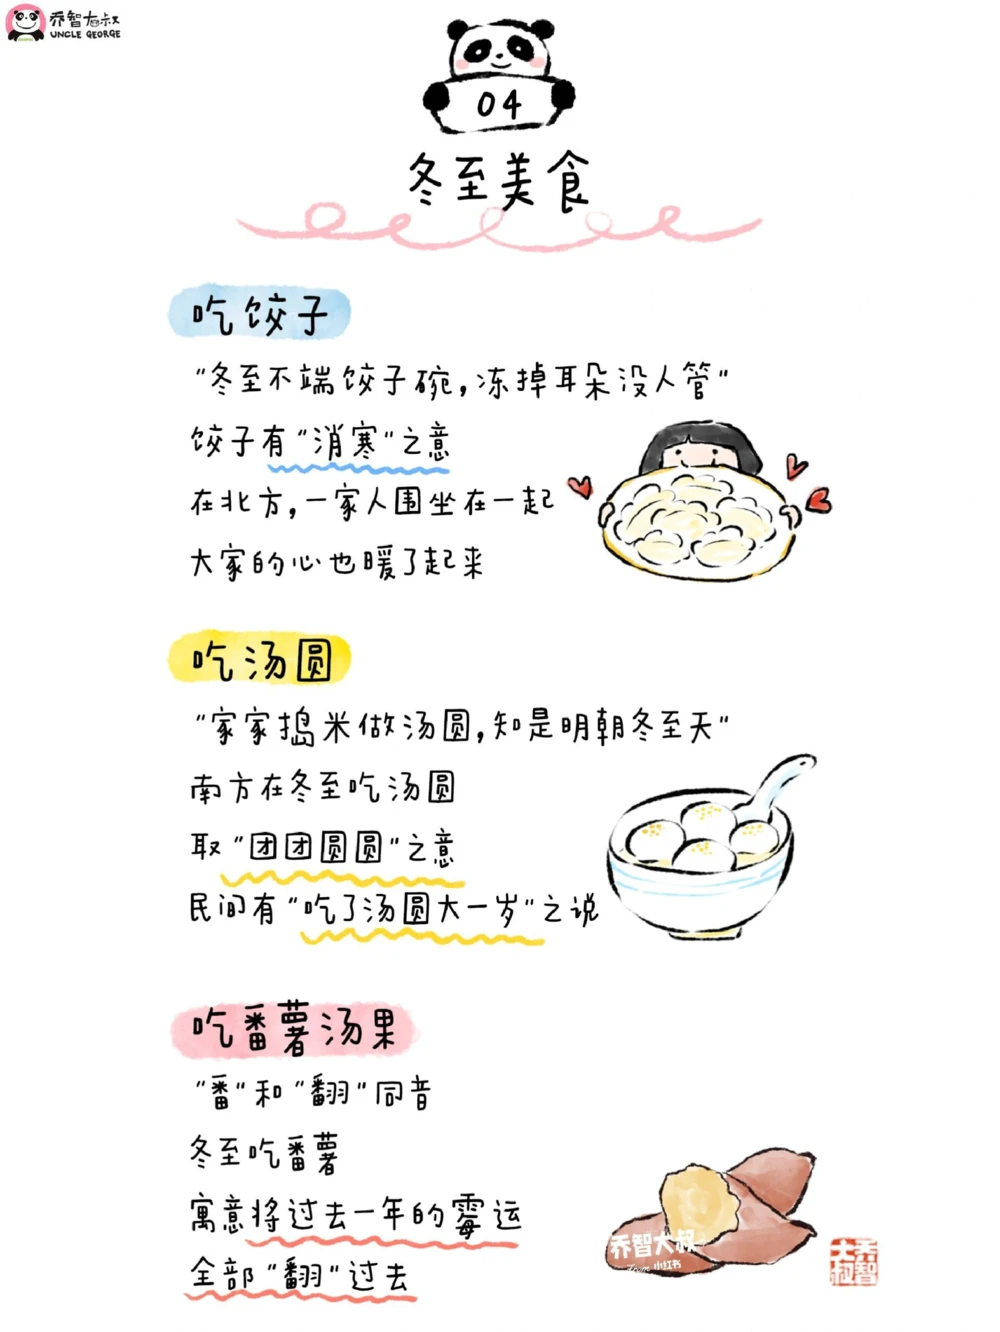 乔智大叔
UNCLE GEORGE
04
冬至美食
吃饺子
"冬至不端饺子碗,冻掉耳朵没人管"
饺子有"消寒"之意
在北方,一家人围坐在一起
大家的心也暖了起来
吃汤圆
"家家捣米做汤圆,知是明朝冬至天"
南方在冬至吃汤圆
取"团团圆圆"之意
民间有"吃了汤圆大一岁"之说
吃番薯汤果
"番"和"翻"同音
冬至吃番薯
寓意将过去一年的霉运
全部"翻"过去
乔智大叔
From 小红书
乔智大叔